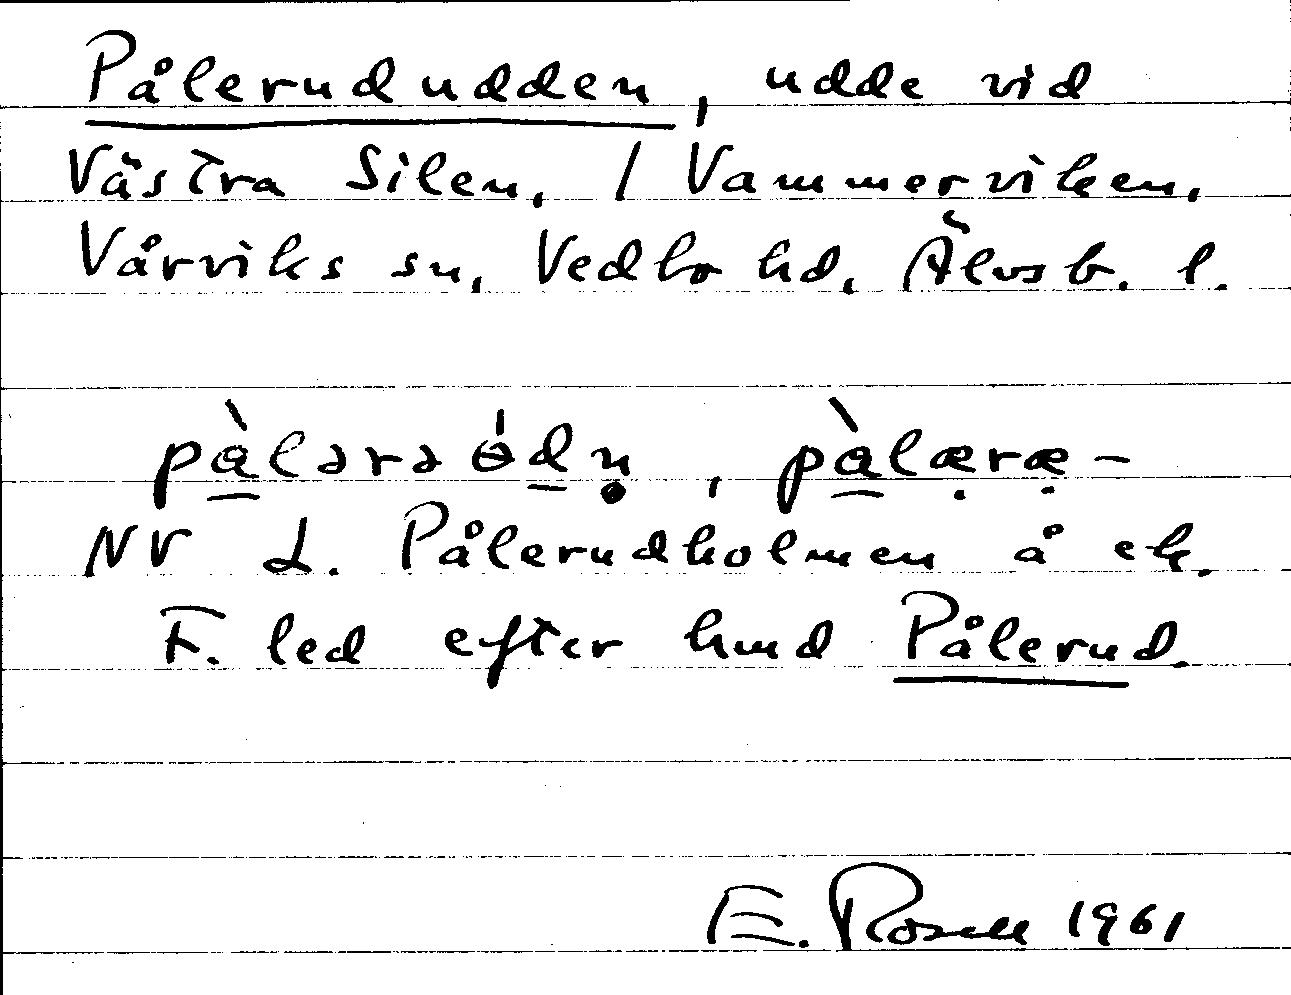 Pålerududden, udde vid
Västra Silen, / Vammerviken,
Vårviks sn, Vedbo hd, Älvsb. l.
pàləraɵ́dn̥, pàlæræ-
NV L. Pålerudholmen å ek.
F. led efter hmd Pålerud.
E. Rosell 1961